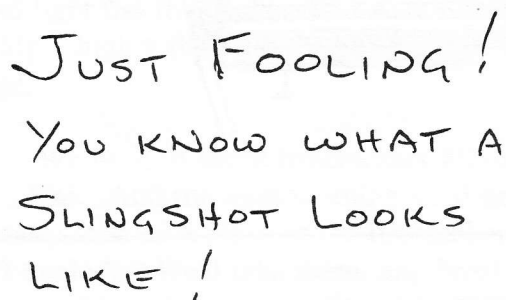 JUST FOOLING!
YOU KNOW WHAT A
SLINGSHOT LOOKS
LIKE!